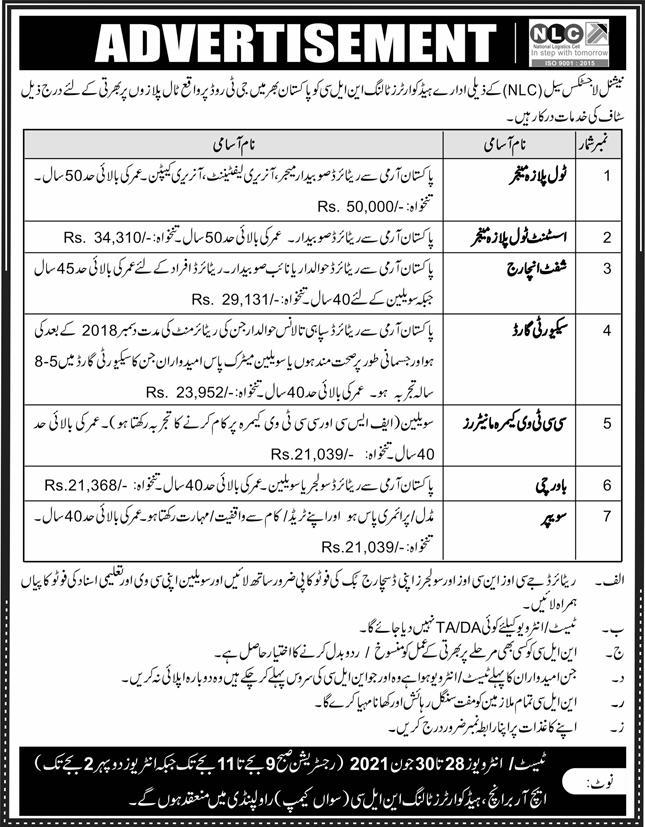 ADVERTISEMENT
NLC
National Logistics Cell
In step with tomorrow
ISO 9001 : 2015
نیشنل لاجسٹکس سیل (NLC) کے ذیلی ادارے ہیڈکوارٹرز ٹالنگ این ایل سی کو پاکستان بھر میں جی ٹی روڈ پر واقع ٹال پلازوں پر بھرتی کے لئے درج ذیل
سٹاف کی خدمات درکار ہیں۔
نمبر شمار نام آسامی نام آسامی
1 ٹول پلازہ منیجر پاکستان آرمی سے ریٹائرڈ صوبیدار میجر، آنریری لیفٹیننٹ، آنریری کیپٹن۔ عمر کی بالائی حد 50 سال۔
تنخواہ: Rs. 50,000/-
2 اسسٹنٹ ٹول پلازہ منیجر پاکستان آرمی سے ریٹائرڈ صوبیدار۔ عمر کی بالائی حد 50 سال۔ تنخواہ: Rs. 34,310/-
3 شفٹ انچارج پاکستان آرمی سے ریٹائرڈ حوالدار یا نائب صوبیدار۔ ریٹائرڈ افراد کے لئے عمر کی بالائی حد 45 سال
جبکہ سویلین کے لئے 40 سال۔ تنخواہ: Rs. 29,131/-
4 سیکیورٹی گارڈ پاکستان آرمی سے ریٹائرڈ سپاہی تا لانس حوالدار جن کی ریٹائرمنٹ کی مدت دسمبر 2018 کے بعد کی
ہو اور جسمانی طور پر صحت مند ہوں یا سویلین میٹرک پاس امیدواران جن کا سیکیورٹی گارڈ میں 5-8
سالہ تجربہ ہو۔ عمر کی بالائی حد 40 سال۔ تنخواہ: Rs. 23,952/-
5 سی سی ٹی وی کیمرہ مانیٹرز سویلین (ایف ایس سی اور سی سی ٹی وی کیمرہ پر کام کرنے کا تجربہ رکھتا ہو)۔ عمر کی بالائی حد
40 سال۔ تنخواہ: Rs.21,039/-
6 باورچی پاکستان آرمی سے ریٹائرڈ سولجر یا سویلین۔ عمر کی بالائی حد 40 سال۔ تنخواہ: Rs.21,368/-
7 سویپر مڈل/ پرائمری پاس ہو اور اپنے ٹریڈ/ کام سے واقفیت/ مہارت رکھتا ہو۔ عمر کی بالائی حد 40 سال۔
تنخواہ: Rs.21,039/-
الف۔ ریٹائرڈ جے سی اوز این سی اوز اور سولجرز اپنی ڈسچارج بک کی فوٹو کاپی ضرور ساتھ لائیں اور سویلین اپنی سی وی اور تعلیمی اسناد کی فوٹو کاپیاں
ہمراہ لائیں۔
ب۔ ٹیسٹ/ انٹرویو کیلئے کوئی TA/DA نہیں دیا جائے گا۔
ج۔ این ایل سی کو کسی بھی مرحلے پر بھرتی کے عمل کو منسوخ / ردوبدل کرنے کا اختیار حاصل ہے۔
د۔ جن امیدواران کا پہلے ٹیسٹ/ انٹرویو ہوا ہے وہ اور جو این ایل سی کی سروس پہلے کر چکے ہیں وہ دوبارہ اپلائی نہ کریں۔
ر۔ این ایل سی تمام ملازمین کو مفت سنگل رہائش اور کھانا مہیا کرے گا۔
ز۔ اپنے کاغذات پر اپنا رابطہ نمبر ضرور درج کریں۔
نوٹ: ٹیسٹ/ انٹرویوز 28 تا 30 جون 2021 (رجسٹریشن صبح 9 بجے تا 11 بجے تک جبکہ انٹریوز دوپہر 2 بجے تک)
ایچ آر برانچ، ہیڈکوارٹرز ٹالنگ این ایل سی (سواں کیمپ) راولپنڈی میں منعقد ہوں گے۔